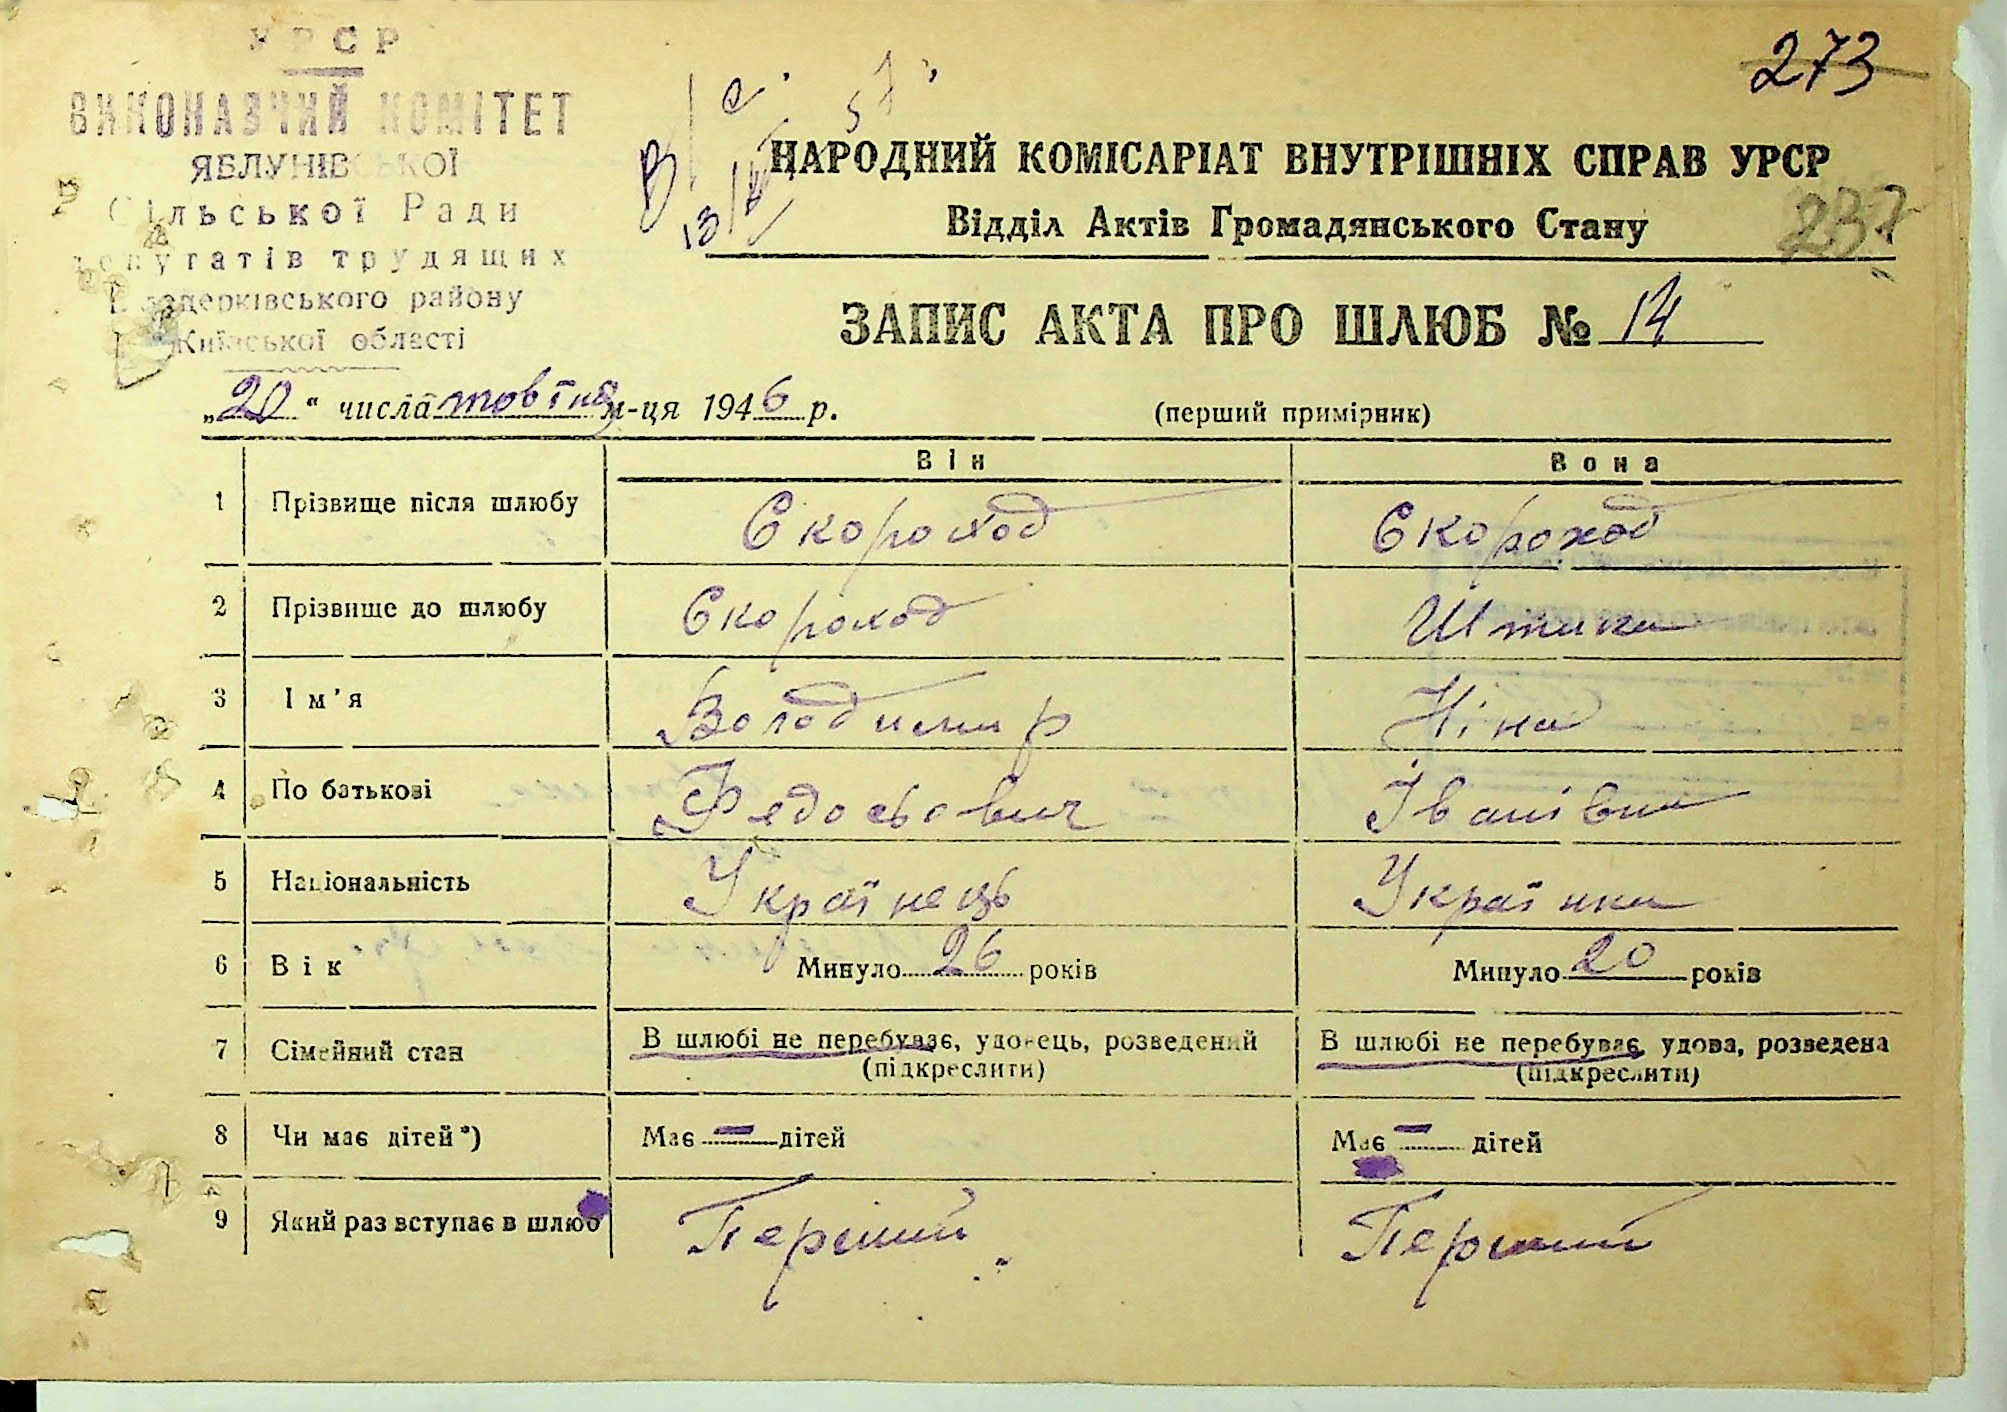 УРСР
ВИКОНАВЧИЙ КОМІТЕТ
ЯБЛУНІВСЬКОЇ
Сільської Ради
депутатів трудящих
району
Київської області
273
НАРОДНИЙ КОМІСАРІАТ ВНУТРІШНІХ СПРАВ УРСР
Відділ Актів Громадянського Стану
237
ЗАПИС АКТА ПРО ШЛЮБ № 14
„20“ числа жовтня м-ця 1946 р.
(перший примірник)
Він Вона
1 Прізвище після шлюбу Скороход Скороход
2 Прізвище до шлюбу Скороход
3 Ім'я Володимир Ніна
4 По батькові Федосьович Іванівна
5 Національність Українець Українка
6 Вік Минуло 26 років Минуло 20 років
7 Сімейний стан В шлюбі не перебуває, удовець, розведений В шлюбі не перебуває, удова, розведена
(підкреслити) (підкреслити)
8 Чи має дітей*) Має — дітей Має — дітей
9 Який раз вступає в шлюб Перший Перший